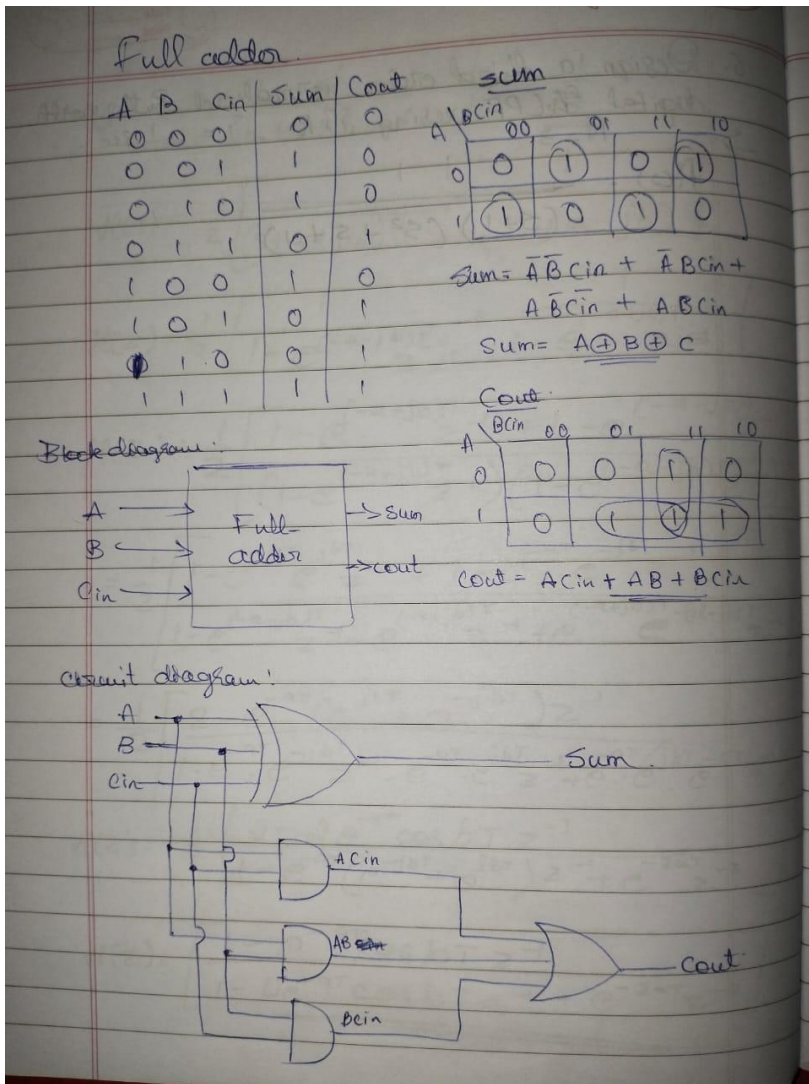 Full adder.
A B Cin Sum Cout
0 0 0 0 0
0 0 1 1 0
0 1 0 1 0
0 1 1 0 1
1 0 0 1 0
1 0 1 0 1
1 0 0 1
1 1 1 1 1
sum
A \ BCin 00 01 11 10
0 0 1 0 1
1 1 0 1 0
Sum = A̅ B̅ Cin + A̅ B Cin +
A B̅ C̅i̅n̅ + A B Cin
Sum = A ⊕ B ⊕ C
Cout
A \ BCin 00 01 11 10
0 0 0 1 0
1 0 1 1 1
Cout = A Cin + AB + B Cin
Block diagram:
A
B
Cin
Full-
adder
Sum
cout
Circuit diagram:
A
B
Cin
Sum.
A Cin
AB
BCin
Cout